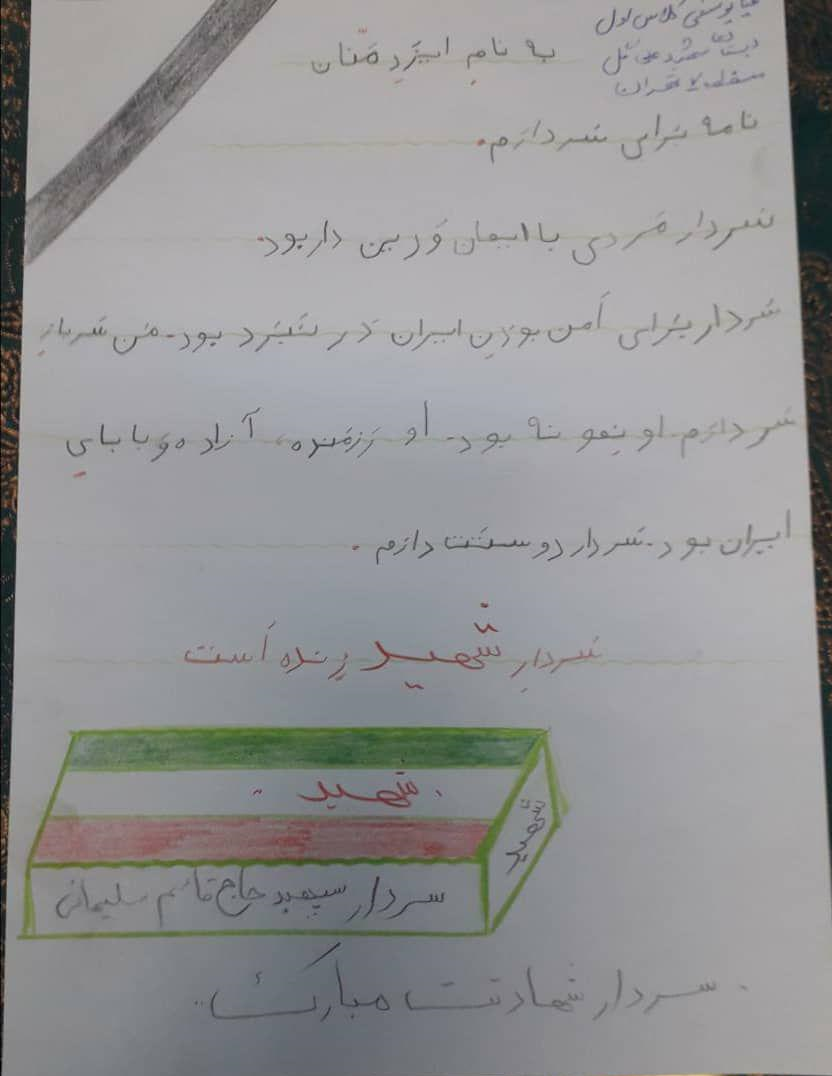 کلاس اول
دبستان شهید
منطقه ۷ تهران
به نامِ ایزَدِ مَنّان
نامه بَرای سَردارَم.
سَردار مَردی با ایمان وَ دین دار بود.
سَردار بَرای اَمن بودَنِ ایران دَر نَبَرد بود. مَن سَربازِ
سَردارَم او نِمونه بود. او رَزمَنده، آزاده وَ بابایِ
ایران بود. سَردار دوستَت دارَم.
سَردارِ شَهید زِنده اَست
شهید
شهید
سردار سپهبد حاج قاسم سلیمانی
سردار شهادتت مبارک